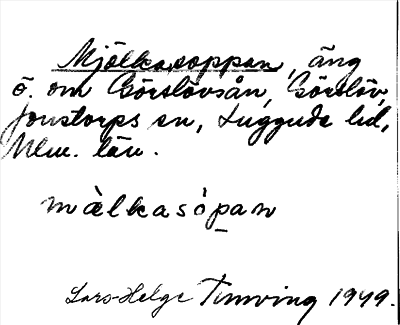 Mjölkasoppan, äng
ö. om Görslövsån, Görslöv,
Jonstorps sn, Luggude hd,
Mlm. län.
màlkasópan
Lars-Helge Tunving 1949.